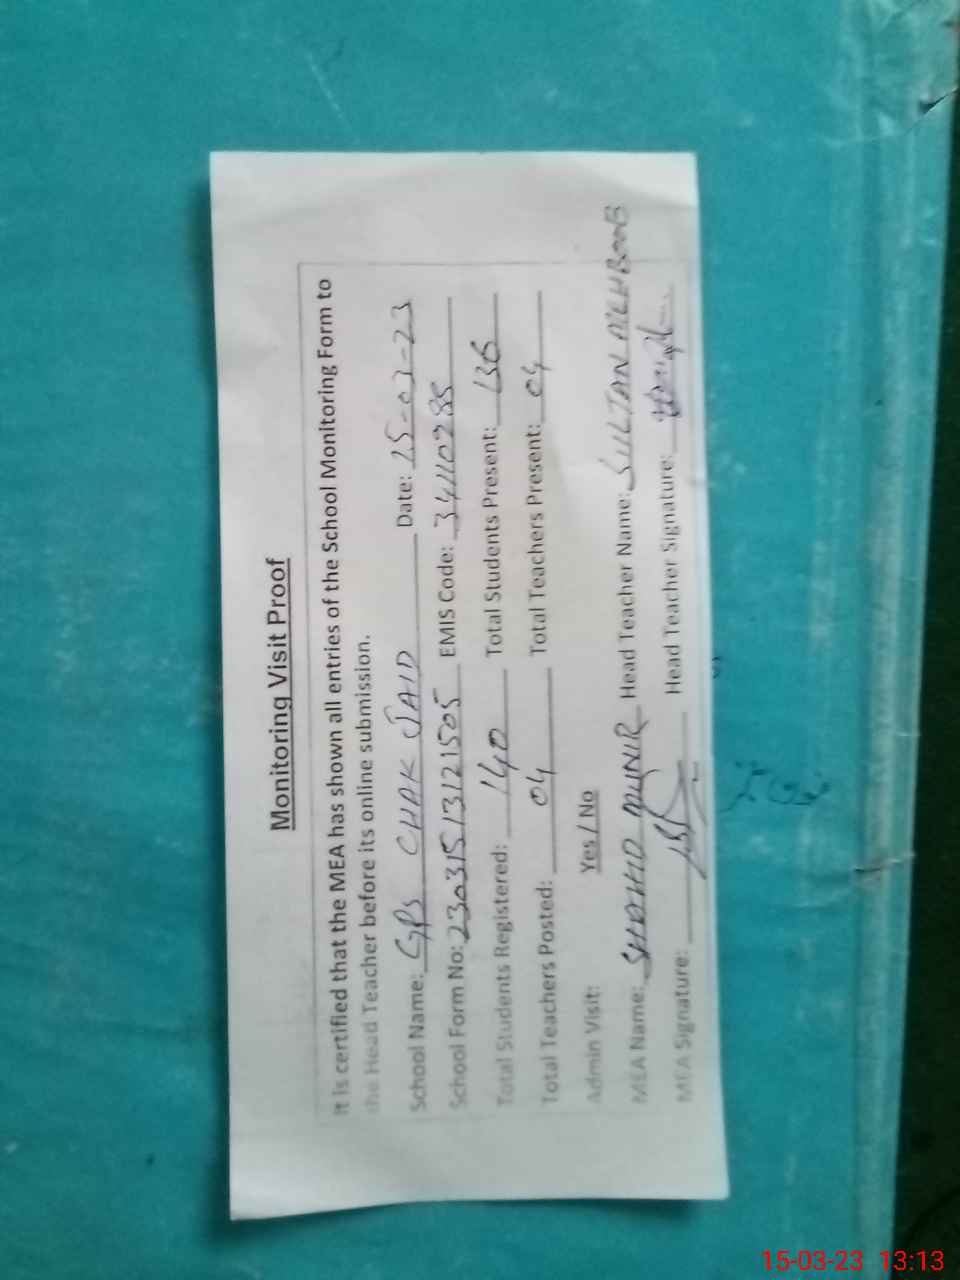 Monitoring Visit Proof
It is certified that the MEA has shown all entries of the School Monitoring Form to
the Head Teacher before its online submission.
School Name: GPS CHAK JAID Date: 15-03-23
School Form No: 230315131121505 EMIS Code: 34110285
Total Students Registered: 140 Total Students Present: 136
Total Teachers Posted: 04 Total Teachers Present: 04
Admin Visit: Yes / No
MEA Name: SHAHID MUNIR Head Teacher Name: SULTAN MEHBOOB
MEA Signature: Head Teacher Signature:
15-03-23 13:13